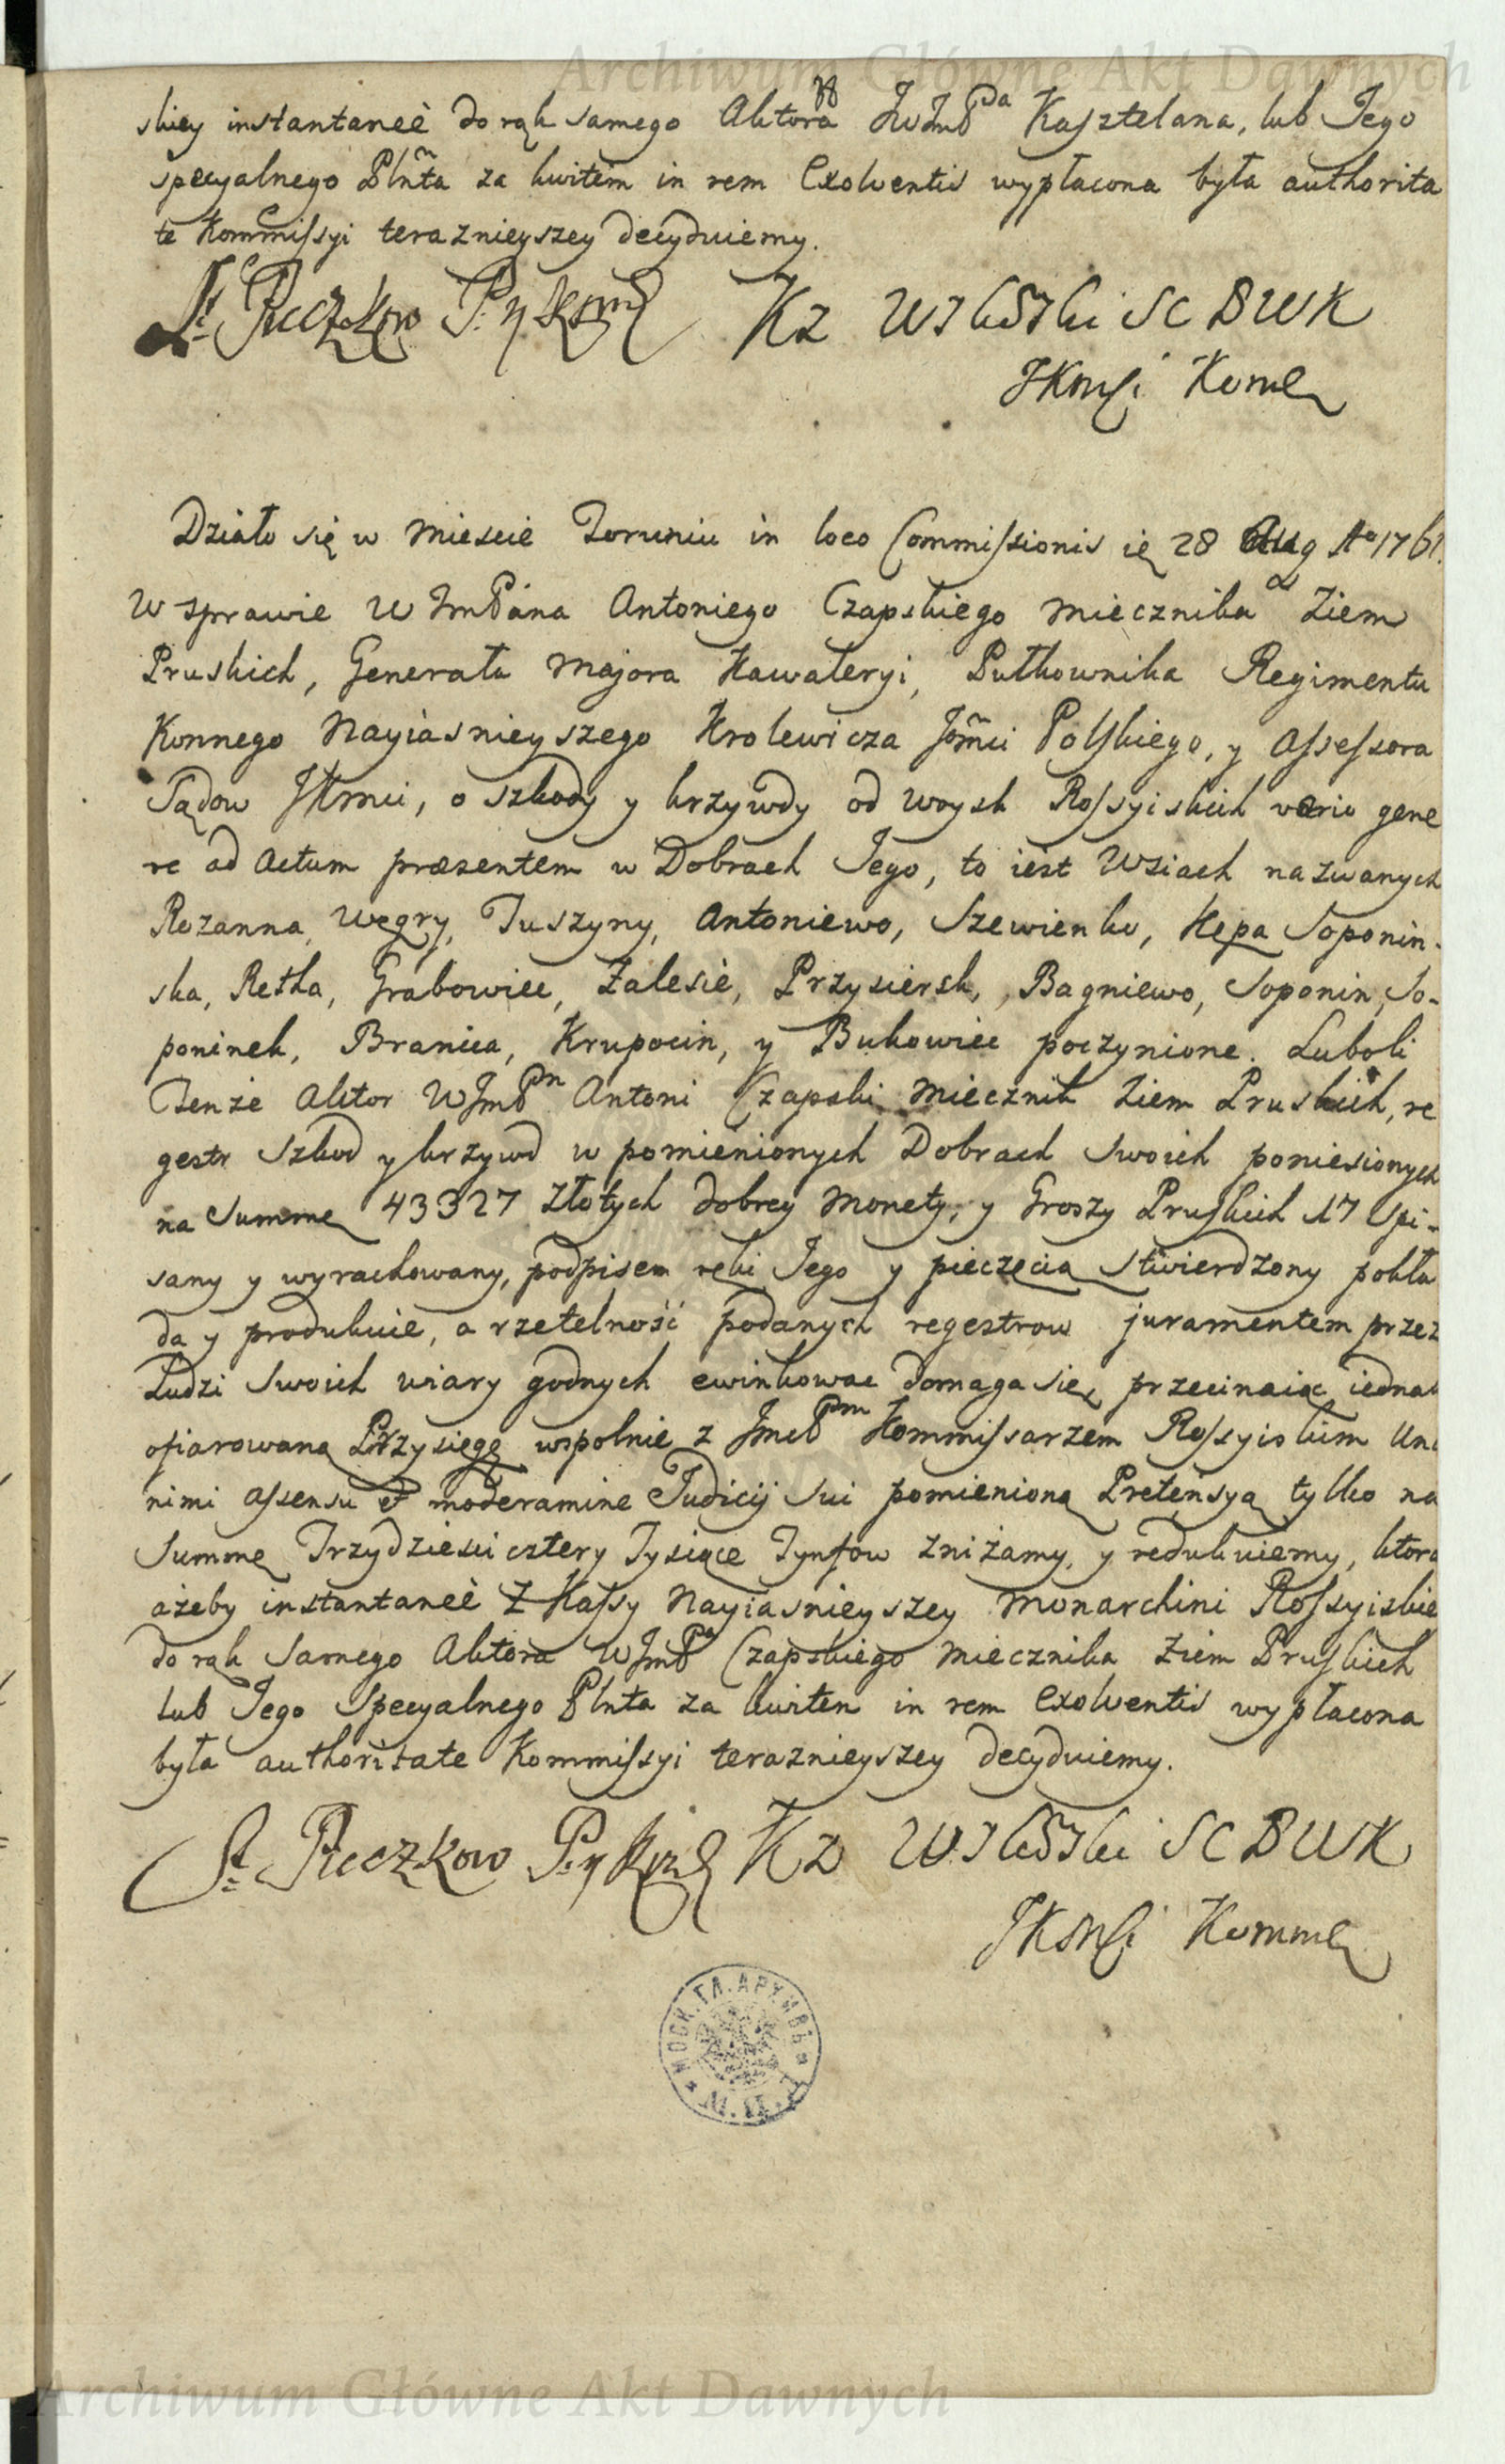 Archiwum Główne Akt Dawnych
skiey instantaneè do rąk samego Aktora JWJmP Kasztelana, lub Jego
specyalnego Plnta za kwitem in rem Exolventis wypłacona była authorita
te Kommissyi terazniejszey decyduiemy.
KZ SC BWK
Działo się w Miescie Toruniu in loco Commissionis ię 28 Aug Ao 1761.
W sprawie WJmPana Antoniego Czapskiego Miecznika Ziem
Pruskich, Generała Majora Kawaleryi, Pułkownika Regimentu
Konnego Nayiasnieyszego Krolewicza Jmci Polskiego, y Assessora
Sądow JKmci, o szkody y krzywdy od woysk Rossyiskich vario gene
re ad Actum præsentem w Dobrach Jego, to iest Wsiach nazwanych
Rozanna, Węgry, Tuszyny, Antoniewo, Szewienko, Kępa Soponin-
ska, Retka, Grabowiec, Zalesie, Przysiersk, Bagniewo, Soponin, So-
poninek, Branica, Krupocin, y Bukowiec poczynione. Luboli
Tenże Aktor WJmPn Antoni Czapski Miecznik Ziem Pruskich, re
gestr szkod y krzywd w pomienionych Dobrach swoich poniesionych
na Summę 43327 Złotych dobrey Monety, y Groszy Pruskich 17 spi-
sany y wyrachowany, podpisem ręki Jego y pieczęcią stwierdzony pokła
da y produkuie, a rzetelność podanych regestrow juramentem przez
Ludzi swoich wiary godnych ewinkowac domaga się, przecinaiąc iednak
ofiarowaną Przysięgę wspolnie z JmcPm Kommissarzem Rossyiskim Una
nimi assensu et moderamine Judicij sui pomienioną Pretensyą tylko na
Summę Trzydziesci cztery Tysiące Tynfow zniżamy, y redukuiemy, ktora
ażeby instantaneè z Kassy Nayiasnieyszey Monarchini Rossyiskie
do rąk samego Aktora WJmPa Czapskiego Miecznika Ziem Pruskich
lub Jego specyalnego Plnta za kwitem in rem Exolventis wypłacona
była authoritate Kommissyi terazniejszey decyduiemy.
KZ SC BWK
МОСК. ГЛ. АРХИВЪ
Archiwum Główne Akt Dawnych